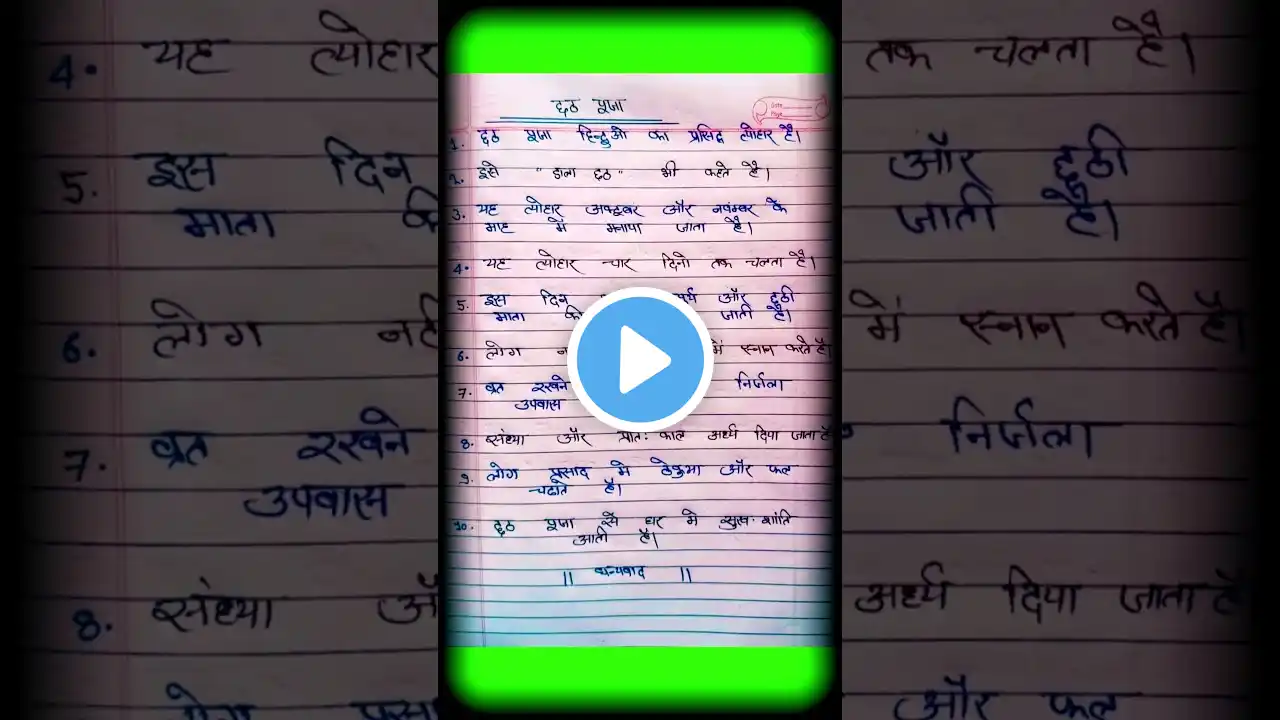 छठ पूजा
Date
Page
1. छठ पूजा हिन्दुओ का प्रसिद्ध त्योहार है।
2. इसे "डाला छठ" भी कहते है।
3. यह त्योहार अक्टूबर और नवम्बर के
माह में मनाया जाता है।
4. यह त्योहार चार दिनो तक चलता है।
5. इस दिन और छठी
माता की जाती है।
6. लोग में स्नान करते है।
7. व्रत रखने निर्जला
उपवास
8. संध्या और प्रातः काल अर्ध्य दिया जाता है
9. लोग प्रसाद मे ठेकुआ और फल
चढाते है।
10. छठ पूजा से घर मे सुख-शांति
आती है।
|| धन्यवाद ||